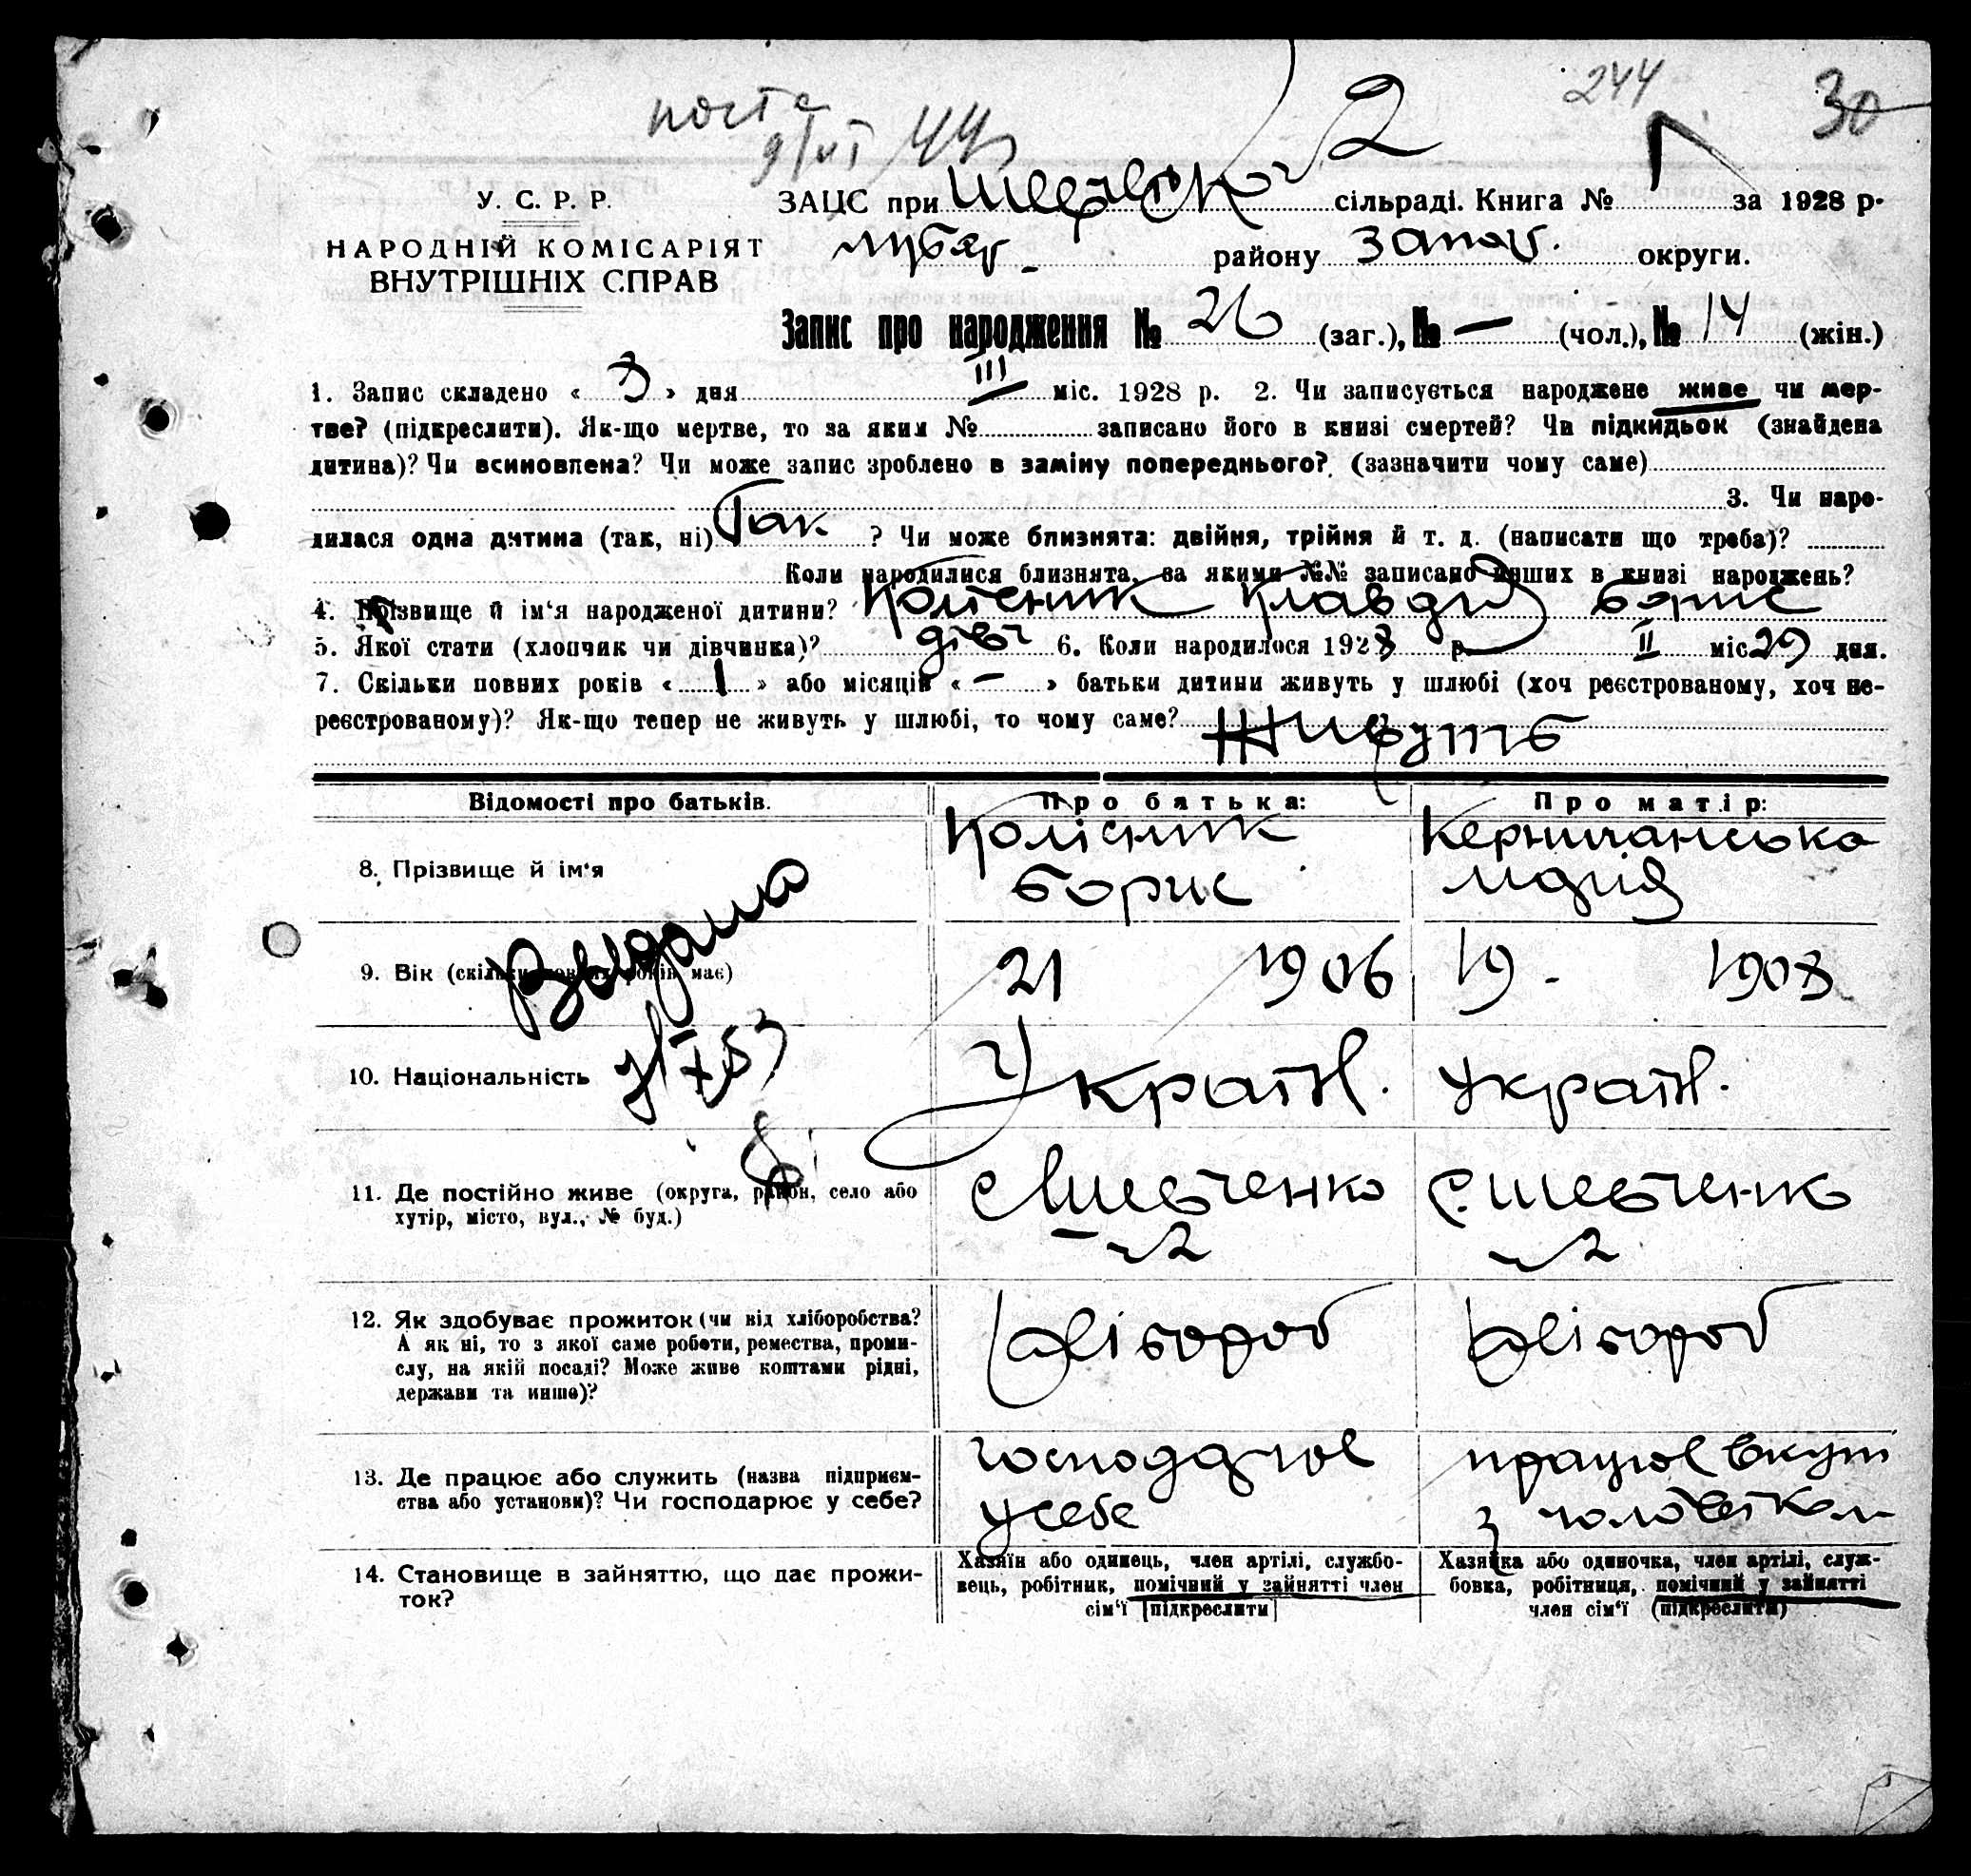 244
30
2
У. С. Р. Р.
НАРОДНІЙ КОМІСАРІЯТ
ВНУТРІШНІХ СПРАВ
ЗАЦС при сільраді. Книга № за 1928 р.
району Запоr. округи.
Запис про народження № 26 (заг.), № — (чол.), № 14 (жін.)
1. Запис складено « 3 » дня III міс. 1928 р. 2. Чи записується народжене живе чи мер-
тве? (підкреслити). Як-що мертве, то за яким № записано його в книзі смертей? Чи підкидьок (знайдена
дитина)? Чи всиновлена? Чи може запис зроблено в заміну попереднього? (зазначити чому саме)
3. Чи наро-
дилася одна дитина (так, ні) Так ? Чи може близнята: двійня, трійня й т. д. (написати що треба)?
Коли народилися близнята, за якими №№ записано инших в книзі народжень?
4. Прізвище й ім‘я народженої дитини? Колісник Клавдия Борис
5. Якої стати (хлопчик чи дівчинка)? дівч 6. Коли народилося 1928 р. II міс 29 дня.
7. Скільки повних років « 1 » або місяців « — » батьки дитини живуть у шлюбі (хоч реєстрованому, хоч не-
реєстрованому)? Як-що тепер не живуть у шлюбі, то чому саме? Живуть
Відомості про батьків. Про батька: Про матір:
8. Прізвище й ім‘я Колісник Борис Керничанська Марія
9. Вік (скільки повних років має) 21 1906 19 - 1908
Видано
10. Національність Україн. Україн.
11. Де постійно живе (округа, район, село або
хутір, місто, вул., № буд.) с. Шевченко 2 с. Шевченко 2
12. Як здобуває прожиток (чи від хліборобства?
А як ні, то з якої саме роботи, ремества, проми-
слу, на якій посаді? Може живе коштами рідні,
держави та инше)? хлібороб хлібороб
13. Де працює або служить (назва підприєм-
ства або установи)? Чи господарює у себе? господарює у себе працює вкупі з чоловіком
14. Становище в зайняттю, що дає прожи-
ток?
Хазяїн або одинець, член артілі, службо-
вець, робітник, помічний у зайнятті член
сім‘ї [підкреслити]
Хазяйка або одиночка, член артілі, служ-
бовка, робітниця, помічний у зайнятті
член сім‘ї (підкреслити)